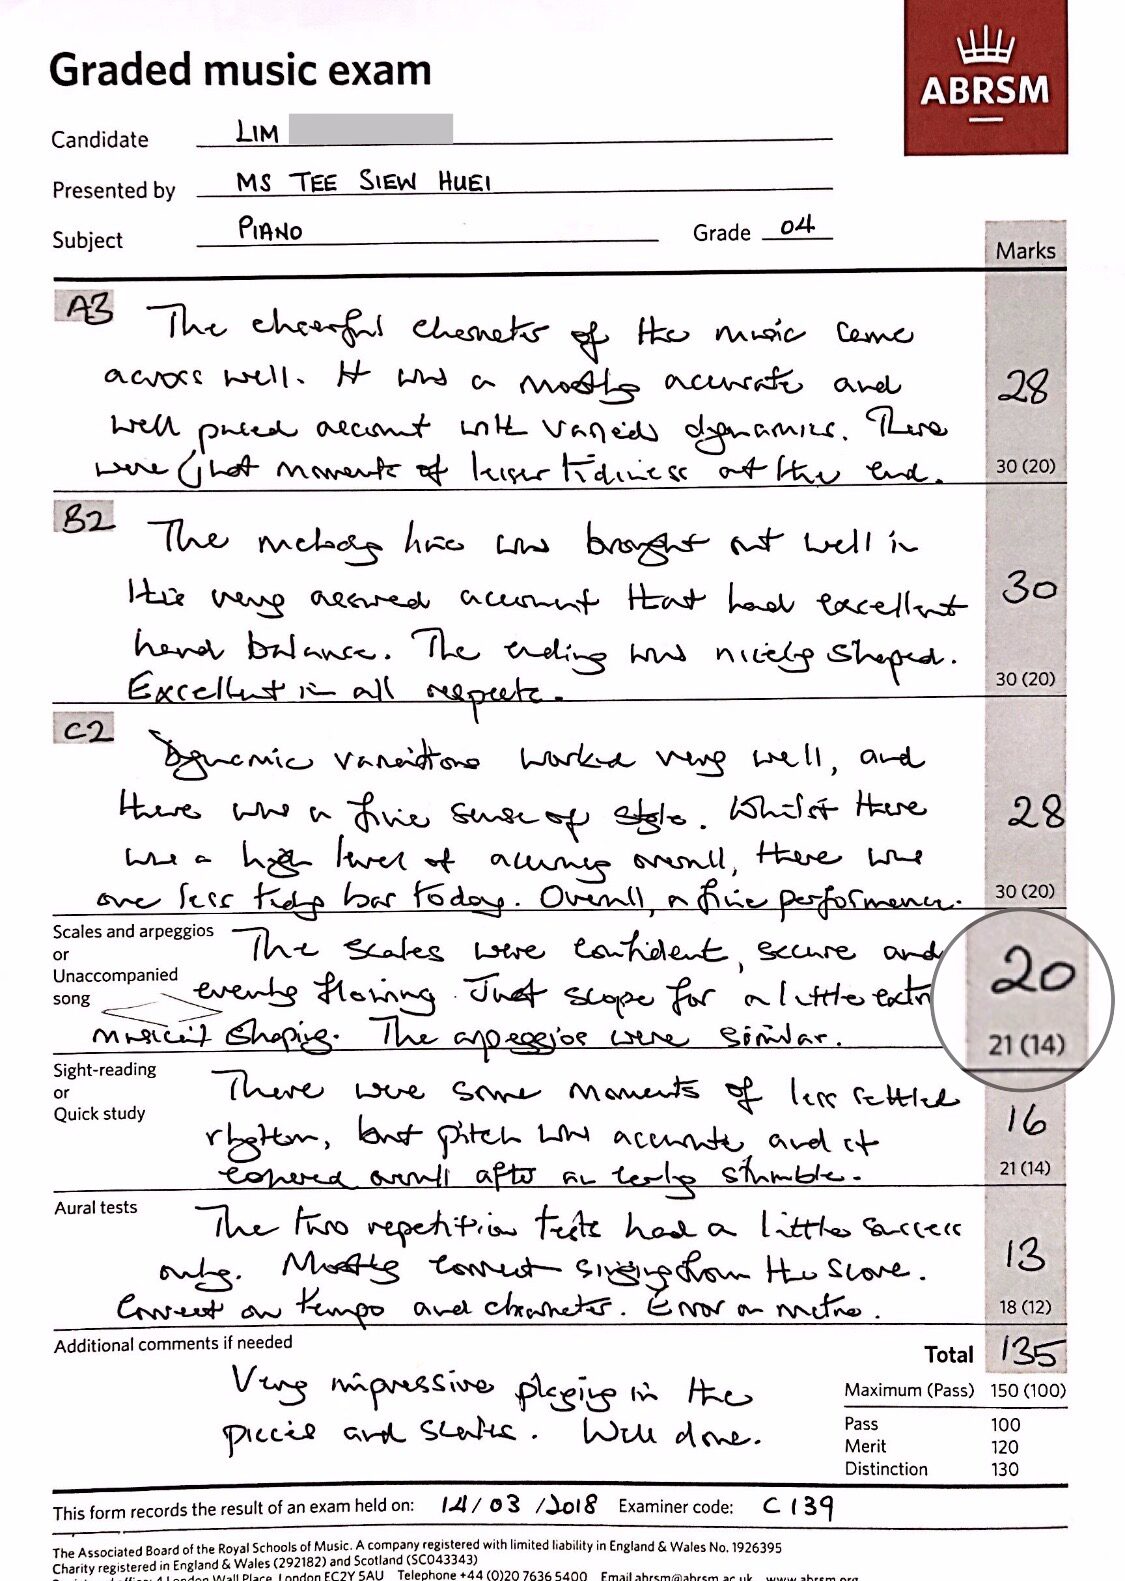 Graded music exam
ABRSM
Candidate LIM
Presented by MS TEE SIEW HUEI
Subject PIANO Grade 04
Marks
A3 The cheerful character of the music came
across well. It was a mostly accurate and
well paced account with varied dynamics. There
were just moments of lesser tidiness at the end.
28
30 (20)
B2 The melody line was brought out well in
this very assured account that had excellent
hand balance. The ending was nicely shaped.
Excellent in all respects.
30
30 (20)
C2 Dynamic variations worked very well, and
there was a fine sense of style. Whilst there
was a high level of accuracy overall, there was
one less tidy bar today. Overall, a fine performance.
28
30 (20)
Scales and arpeggios
or
Unaccompanied
song
The scales were confident, secure and
evenly flowing. Just scope for a little extra
musical shaping. The arpeggios were similar.
20
21 (14)
Sight-reading
or
Quick study
There were some moments of less settled
rhythm, but pitch was accurate, and it
cohered overall after an early stumble.
16
21 (14)
Aural tests
The two repetition tests had a little success
only. Mostly correct singing from the score.
Correct on tempo and character. Error on metre.
13
18 (12)
Additional comments if needed
Very impressive playing in the
pieces and scales. Well done.
Total 135
Maximum (Pass) 150 (100)
Pass 100
Merit 120
Distinction 130
This form records the result of an exam held on: 14/03/2018 Examiner code: C 139
The Associated Board of the Royal Schools of Music. A company registered with limited liability in England & Wales No. 1926395
Charity registered in England & Wales (292182) and Scotland (SC043343)
Registered office: 4 London Wall Place, London EC2Y 5AU Telephone +44 (0)20 7636 5400 Email abrsm@abrsm.ac.uk www.abrsm.org